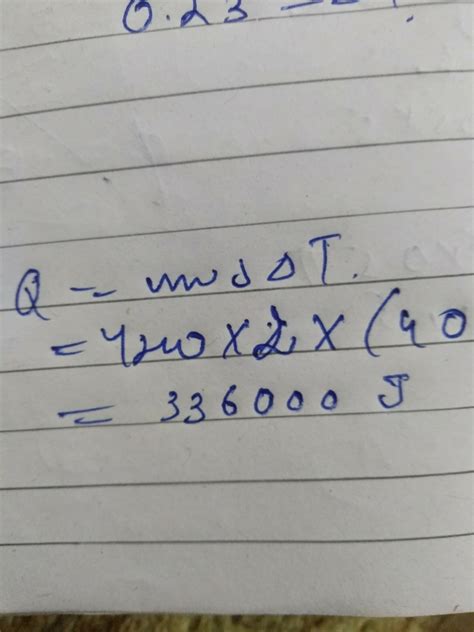 0.23
Q = ms Δ T.
= 4200 × 2 × (40
= 336000 J